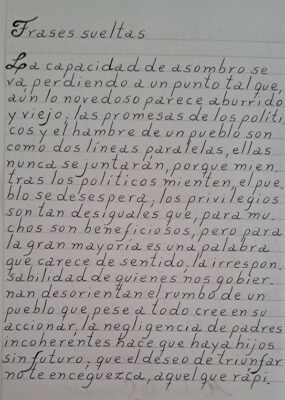 Frases sueltas
La capacidad de asombro se
va perdiendo a un punto tal que,
aún lo novedoso parece aburrido
y viejo, las promesas de los políti
cos y el hambre de un pueblo son
como dos líneas paralelas, ellas
nunca se juntarán, porque mien_
tras los políticos mienten, el pue_
blo se desespera, los privilegios
son tan desiguales que, para mu_
chos son beneficiosos, pero para
la gran mayoría es una palabra
que carece de sentido, la irrespon_
sabilidad de quienes nos gobier_
nan desorientan el rumbo de un
pueblo que pese a todo cree en su
accionar, la negligencia de padres
incoherentes hace que haya hijos
sin futuro, que el deseo de triunfar
no te enceguezca, aquel que rápi_